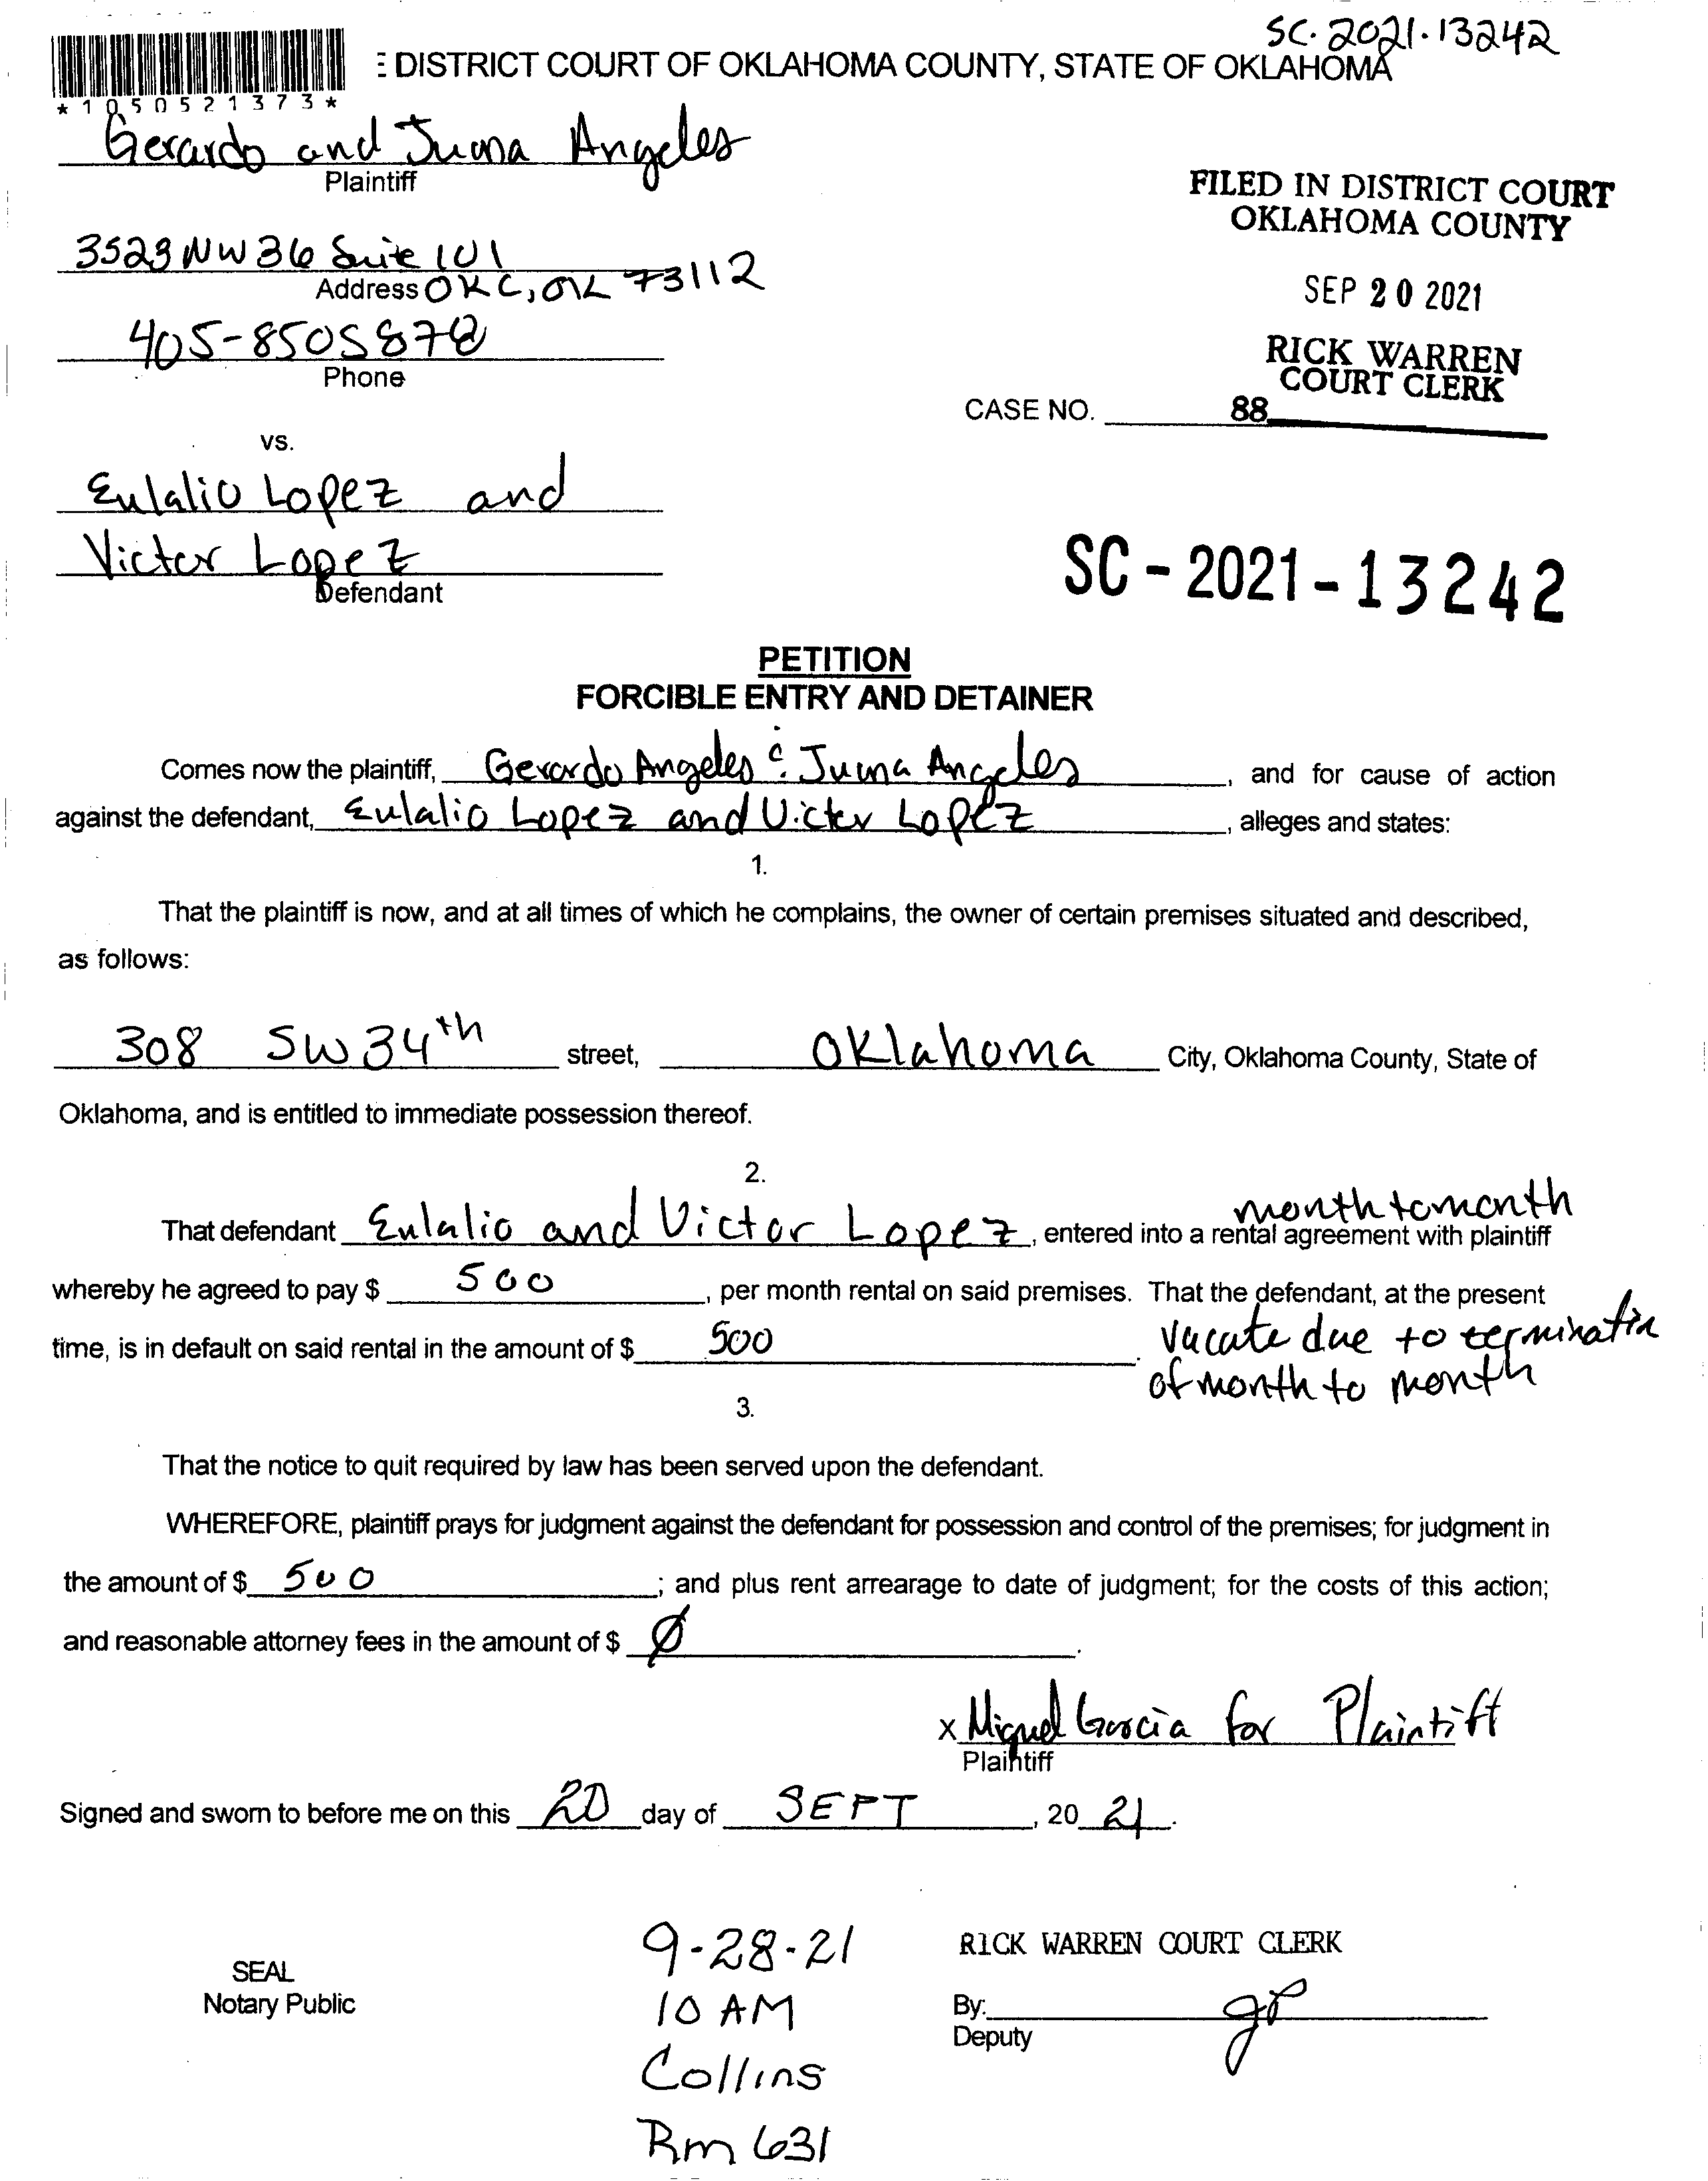 SC-2021-13242
DISTRICT COURT OF OKLAHOMA COUNTY, STATE OF OKLAHOMA
*1050521373*
Gerardo and Juana Angeles
Plaintiff
FILED IN DISTRICT COURT
OKLAHOMA COUNTY
3523 NW 36 Suite 101
Address OKC, OK 73112
SEP 20 2021
405-8505878
Phone
RICK WARREN
COURT CLERK
CASE NO. 88
vs.
Eulalio Lopez and
Victor Lopez
Defendant
SC-2021-13242
PETITION
FORCIBLE ENTRY AND DETAINER
Comes now the plaintiff, Gerardo Angeles & Juana Angeles, and for cause of action
against the defendant, Eulalio Lopez and Victor Lopez, alleges and states:
1.
That the plaintiff is now, and at all times of which he complains, the owner of certain premises situated and described,
as follows:
308 SW 34th street, Oklahoma City, Oklahoma County, State of
Oklahoma, and is entitled to immediate possession thereof.
2.
month to month
That defendant Eulalio and Victor Lopez, entered into a rental agreement with plaintiff
whereby he agreed to pay $ 500, per month rental on said premises. That the defendant, at the present
time, is in default on said rental in the amount of $ 500. vacate due to termination
of month to month
3.
That the notice to quit required by law has been served upon the defendant.
WHEREFORE, plaintiff prays for judgment against the defendant for possession and control of the premises; for judgment in
the amount of $ 500; and plus rent arrearage to date of judgment; for the costs of this action;
and reasonable attorney fees in the amount of $ Ø.
x Miguel Garcia for Plaintiff
Plaintiff
Signed and sworn to before me on this 20 day of SEPT, 20 21.
9-28-21
RICK WARREN COURT CLERK
SEAL
Notary Public
10 AM
By: JP
Deputy
Collins
Rm 631